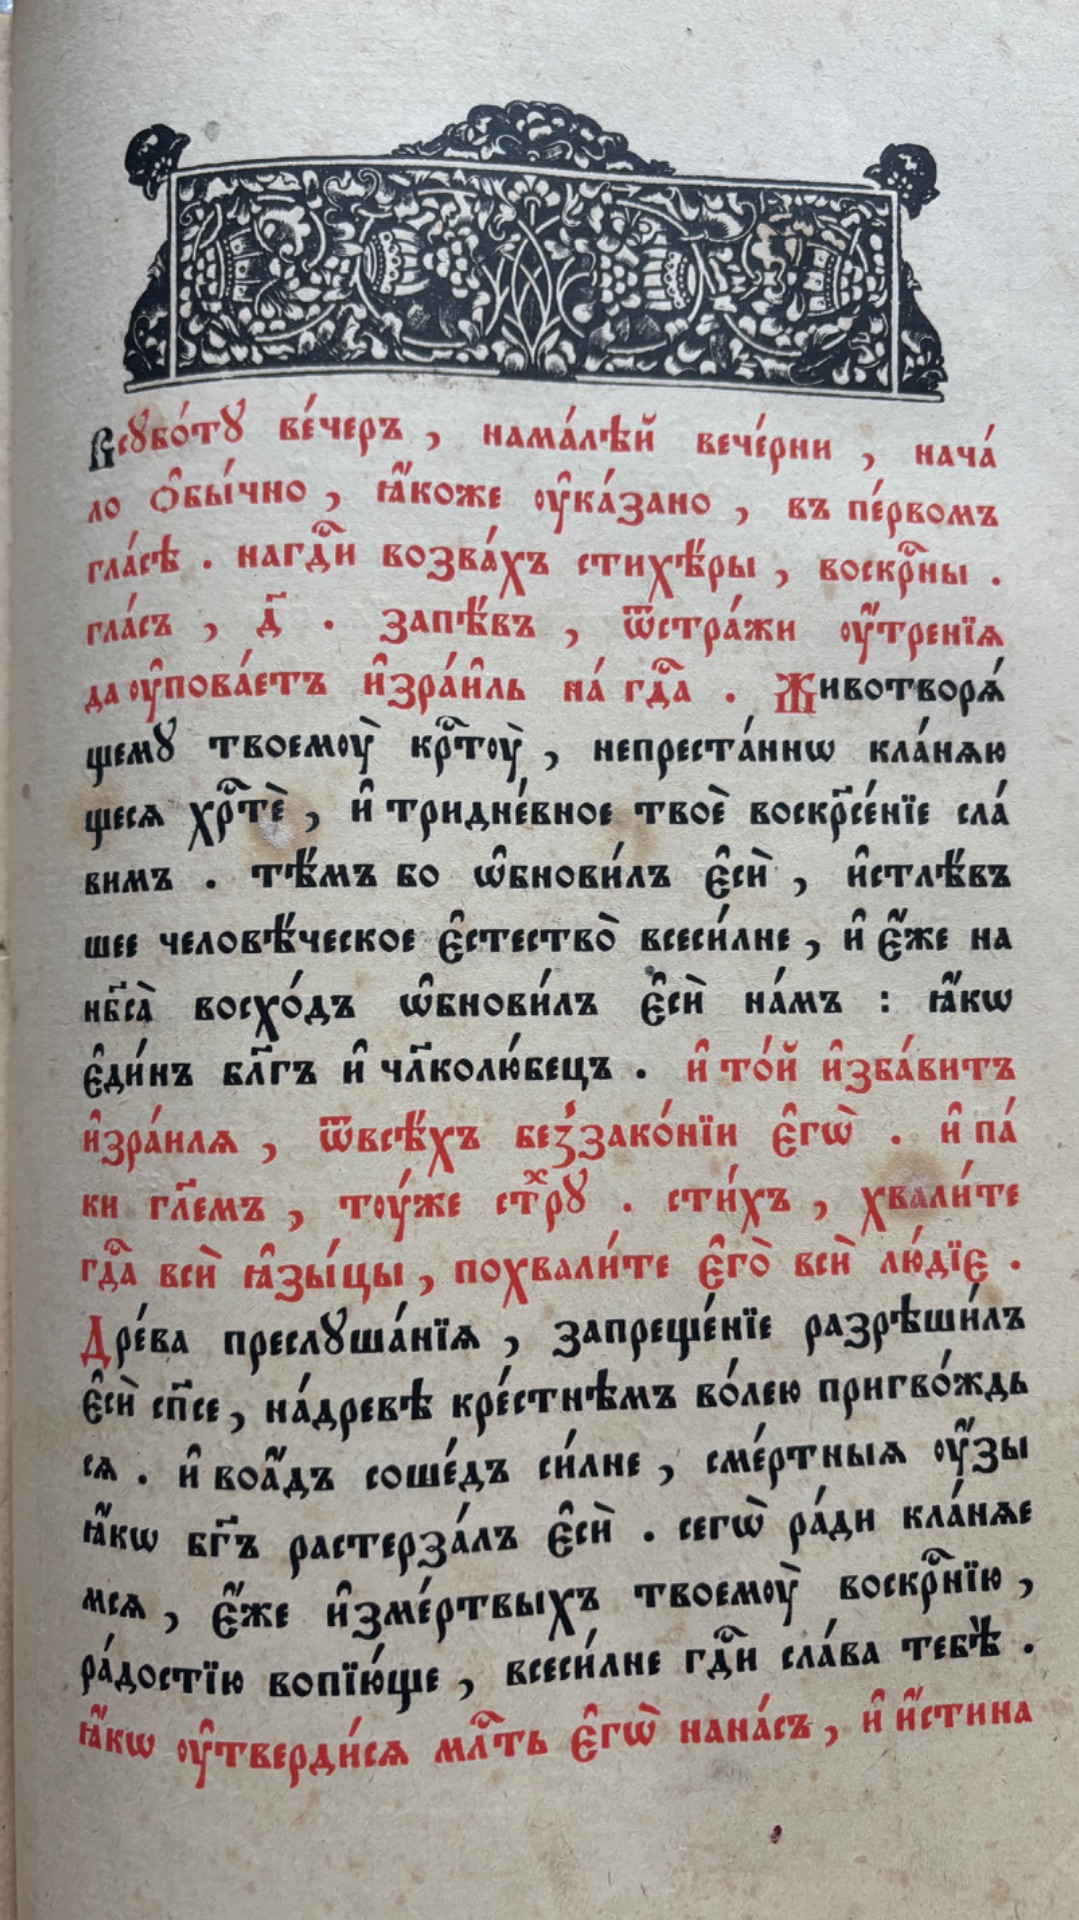 Всꙋбо́тꙋ ве́черъ , нама́лѣй вече́рни , нача́
ло ѻ҆бы́чно , ꙗ҆́коже ᲂу҆ка́зано , въ пе́рвомъ
гла́сѣ . нагдⷭ҇и возва́хъ стихѣ́ры , воскрⷭ҇ны .
гла́съ , д҃ . запѣ́въ , ѿстра́жи ᲂу҆́тренїѧ
да ᲂу҆пова́етъ и҆зра́и҆ль на́ гдⷭ҇а . Животворѧ́
щемꙋ твоемоу̀ крⷭ҇тоу̀ , непреста́ннѡ кла́нѧю
щесѧ хрⷭ҇тѐ , и҆ тридне́вное твоѐ воскр҃се́нїе сла́
вимъ . тѣ́мъ бо ѡ҆бнови́лъ є҆сѝ , и҆стлѣ́въ
шее человѣ́ческое є҆стество̀ всеси́лне , и҆ є҆́же на
нб҃са̀ восхо́дъ ѡ҆бнови́лъ є҆сѝ на́мъ : ꙗ҆́кѡ
є҆ди́нъ бл҃гъ и҆ чл҃колю́бецъ . и҆ то́й и҆зба́витъ
и҆зра́илѧ , ѿвсѣ́хъ без̾зако́нїи є҆гѡ̀ . и҆ па́
ки гл҃емъ , тоу́же стⷯрꙋ . сти́хъ , хвали́те
гдⷭ҇а всѝ ꙗ҆зы́цы , похвали́те є҆го̀ всѝ лю́дїе .
Дре́ва преслꙋша́нїѧ , запреще́нїе разрѣши́лъ
є҆сѝ сп҃се , на́древѣ кре́стнѣмъ во́лею пригво́ждь
сѧ . и҆ воа҆́дъ соше́дъ си́лне , сме́ртныѧ ᲂу҆́зы
ꙗ҆́кѡ бг҃ъ растерза́лъ є҆сѝ . сегѡ̀ ра́ди кла́нѧе
мсѧ , є҆́же и҆зме́ртвыхъ твоемоу̀ воскрⷭ҇нїю ,
ра́достїю вопїю́ще , всеси́лне гдⷭ҇и сла́ва тебѣ̀ .
ꙗ҆́кѡ ᲂу҆тверди́сѧ млⷭ҇ть є҆гѡ̀ нана́съ , и҆ и҆́стина